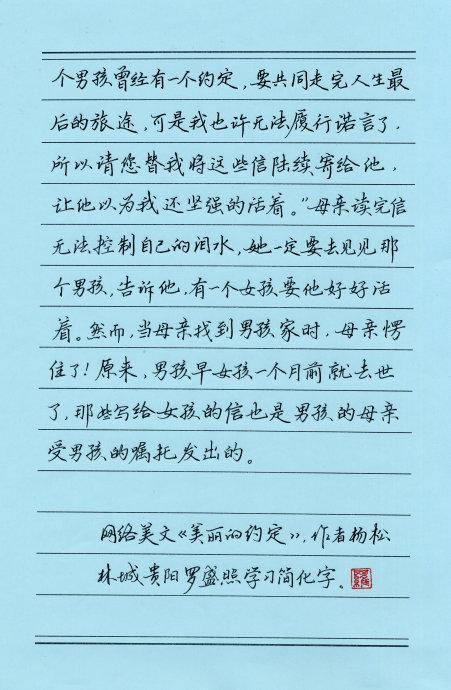 个男孩曾经有一个约定，要共同走完人生最
后的旅途，可是我也许无法履行诺言了，
所以请您替我将这些信陆续寄给他，
让他以为我还坚强的活着。”母亲读完信
无法控制自己的泪水，她一定要去见见那
个男孩，告诉他，有一个女孩要他好好活
着。然而，当母亲找到男孩家时，母亲愣
住了！原来，男孩早女孩一个月前就去世
了，那些写给女孩的信也是男孩的母亲
受男孩的嘱托发出的。
网络美文《美丽的约定》，作者杨松
林城贵阳罗盛照学习简化字。
羅